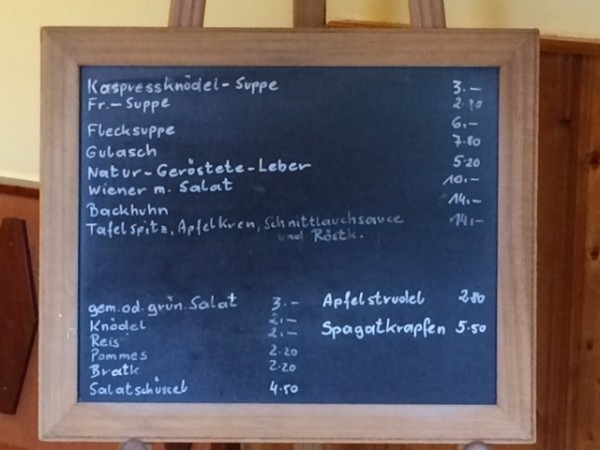 Kaspressknödel-Suppe 3.-
Fr.-Suppe 2.90
Flecksuppe 6.-
Gulasch 7.80
Natur-Geröstete-Leber 5.20
Wiener m. Salat 10.-
Backhuhn 14.-
Tafelspitz, Apfelkren, Schnittlauchsauce 14.-
und Röstk.
gem.od.grün.Salat 3.-
Knödel 2.-
Reis 2.-
Pommes 2.20
Bratk 2.20
Salatschüssel 4.50
Apfelstrudel 2.80
Spagatkrapfen 5.50